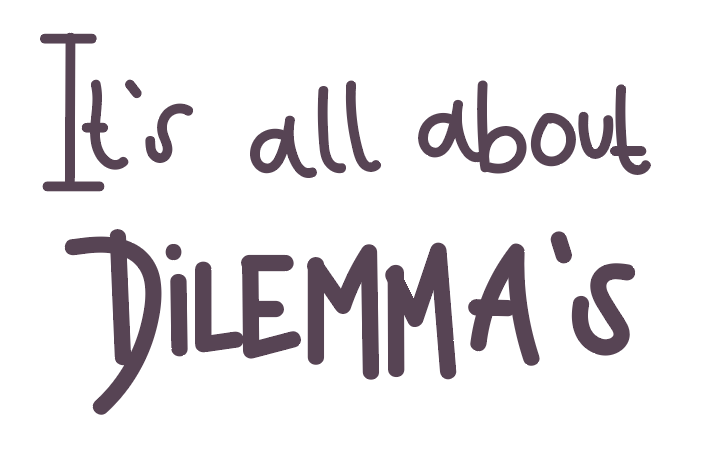 It's all about
DiLEMMA's